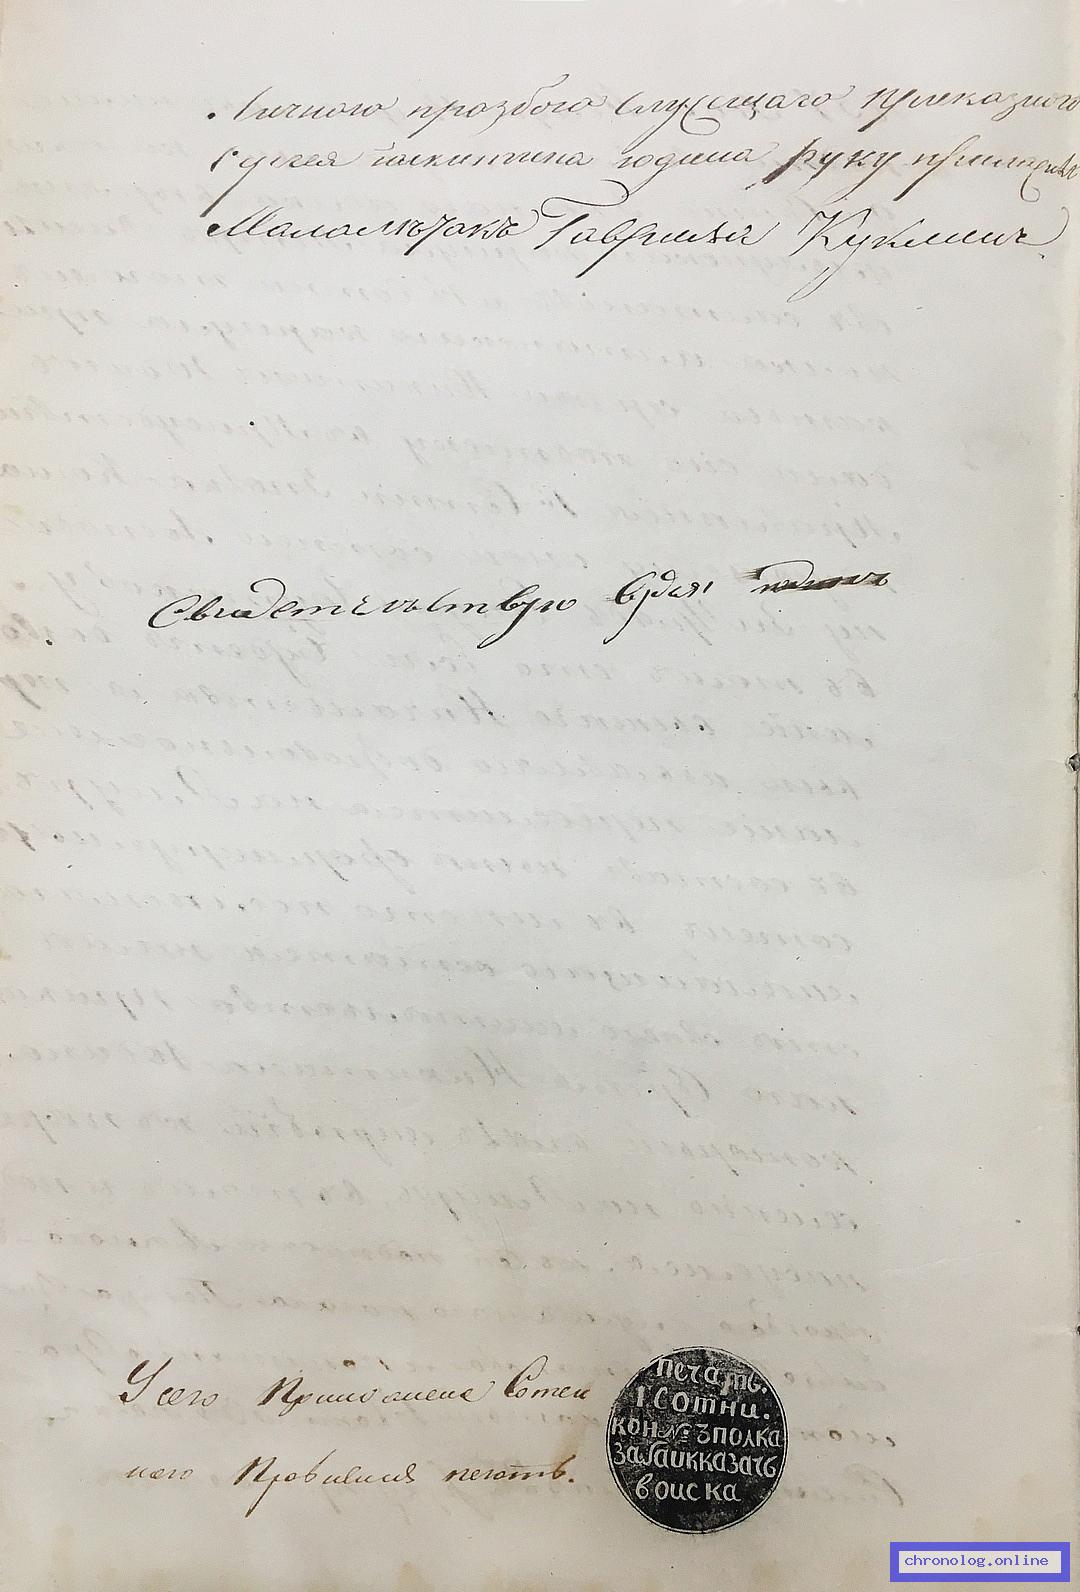 Личного прозбою служащаго приказного
Сергея Никитина Юдина руку приложилъ
Малолѣтокъ Гаврила Куклинъ
Свидетельствую
У сего Приложена Сотен
ного Правления печать.
Печать.
1 Сотни.
кон № 3 полка
Забайкказачь
войска
chronolog.online